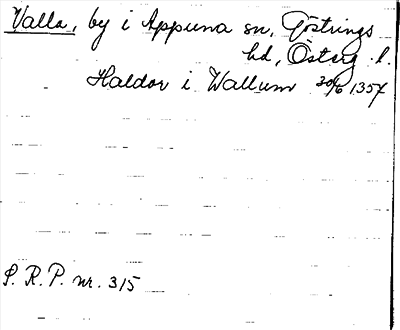 Valla, by i Appuna sn, Göstrings
hd, Österg. l.
Haldor i Wallum 20/6 1357
S. R. P. nr. 315